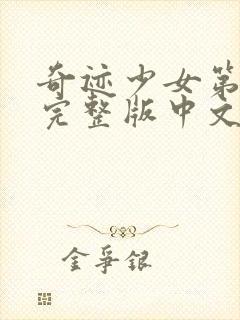 奇迹少女第
完整版中文
金爭銀